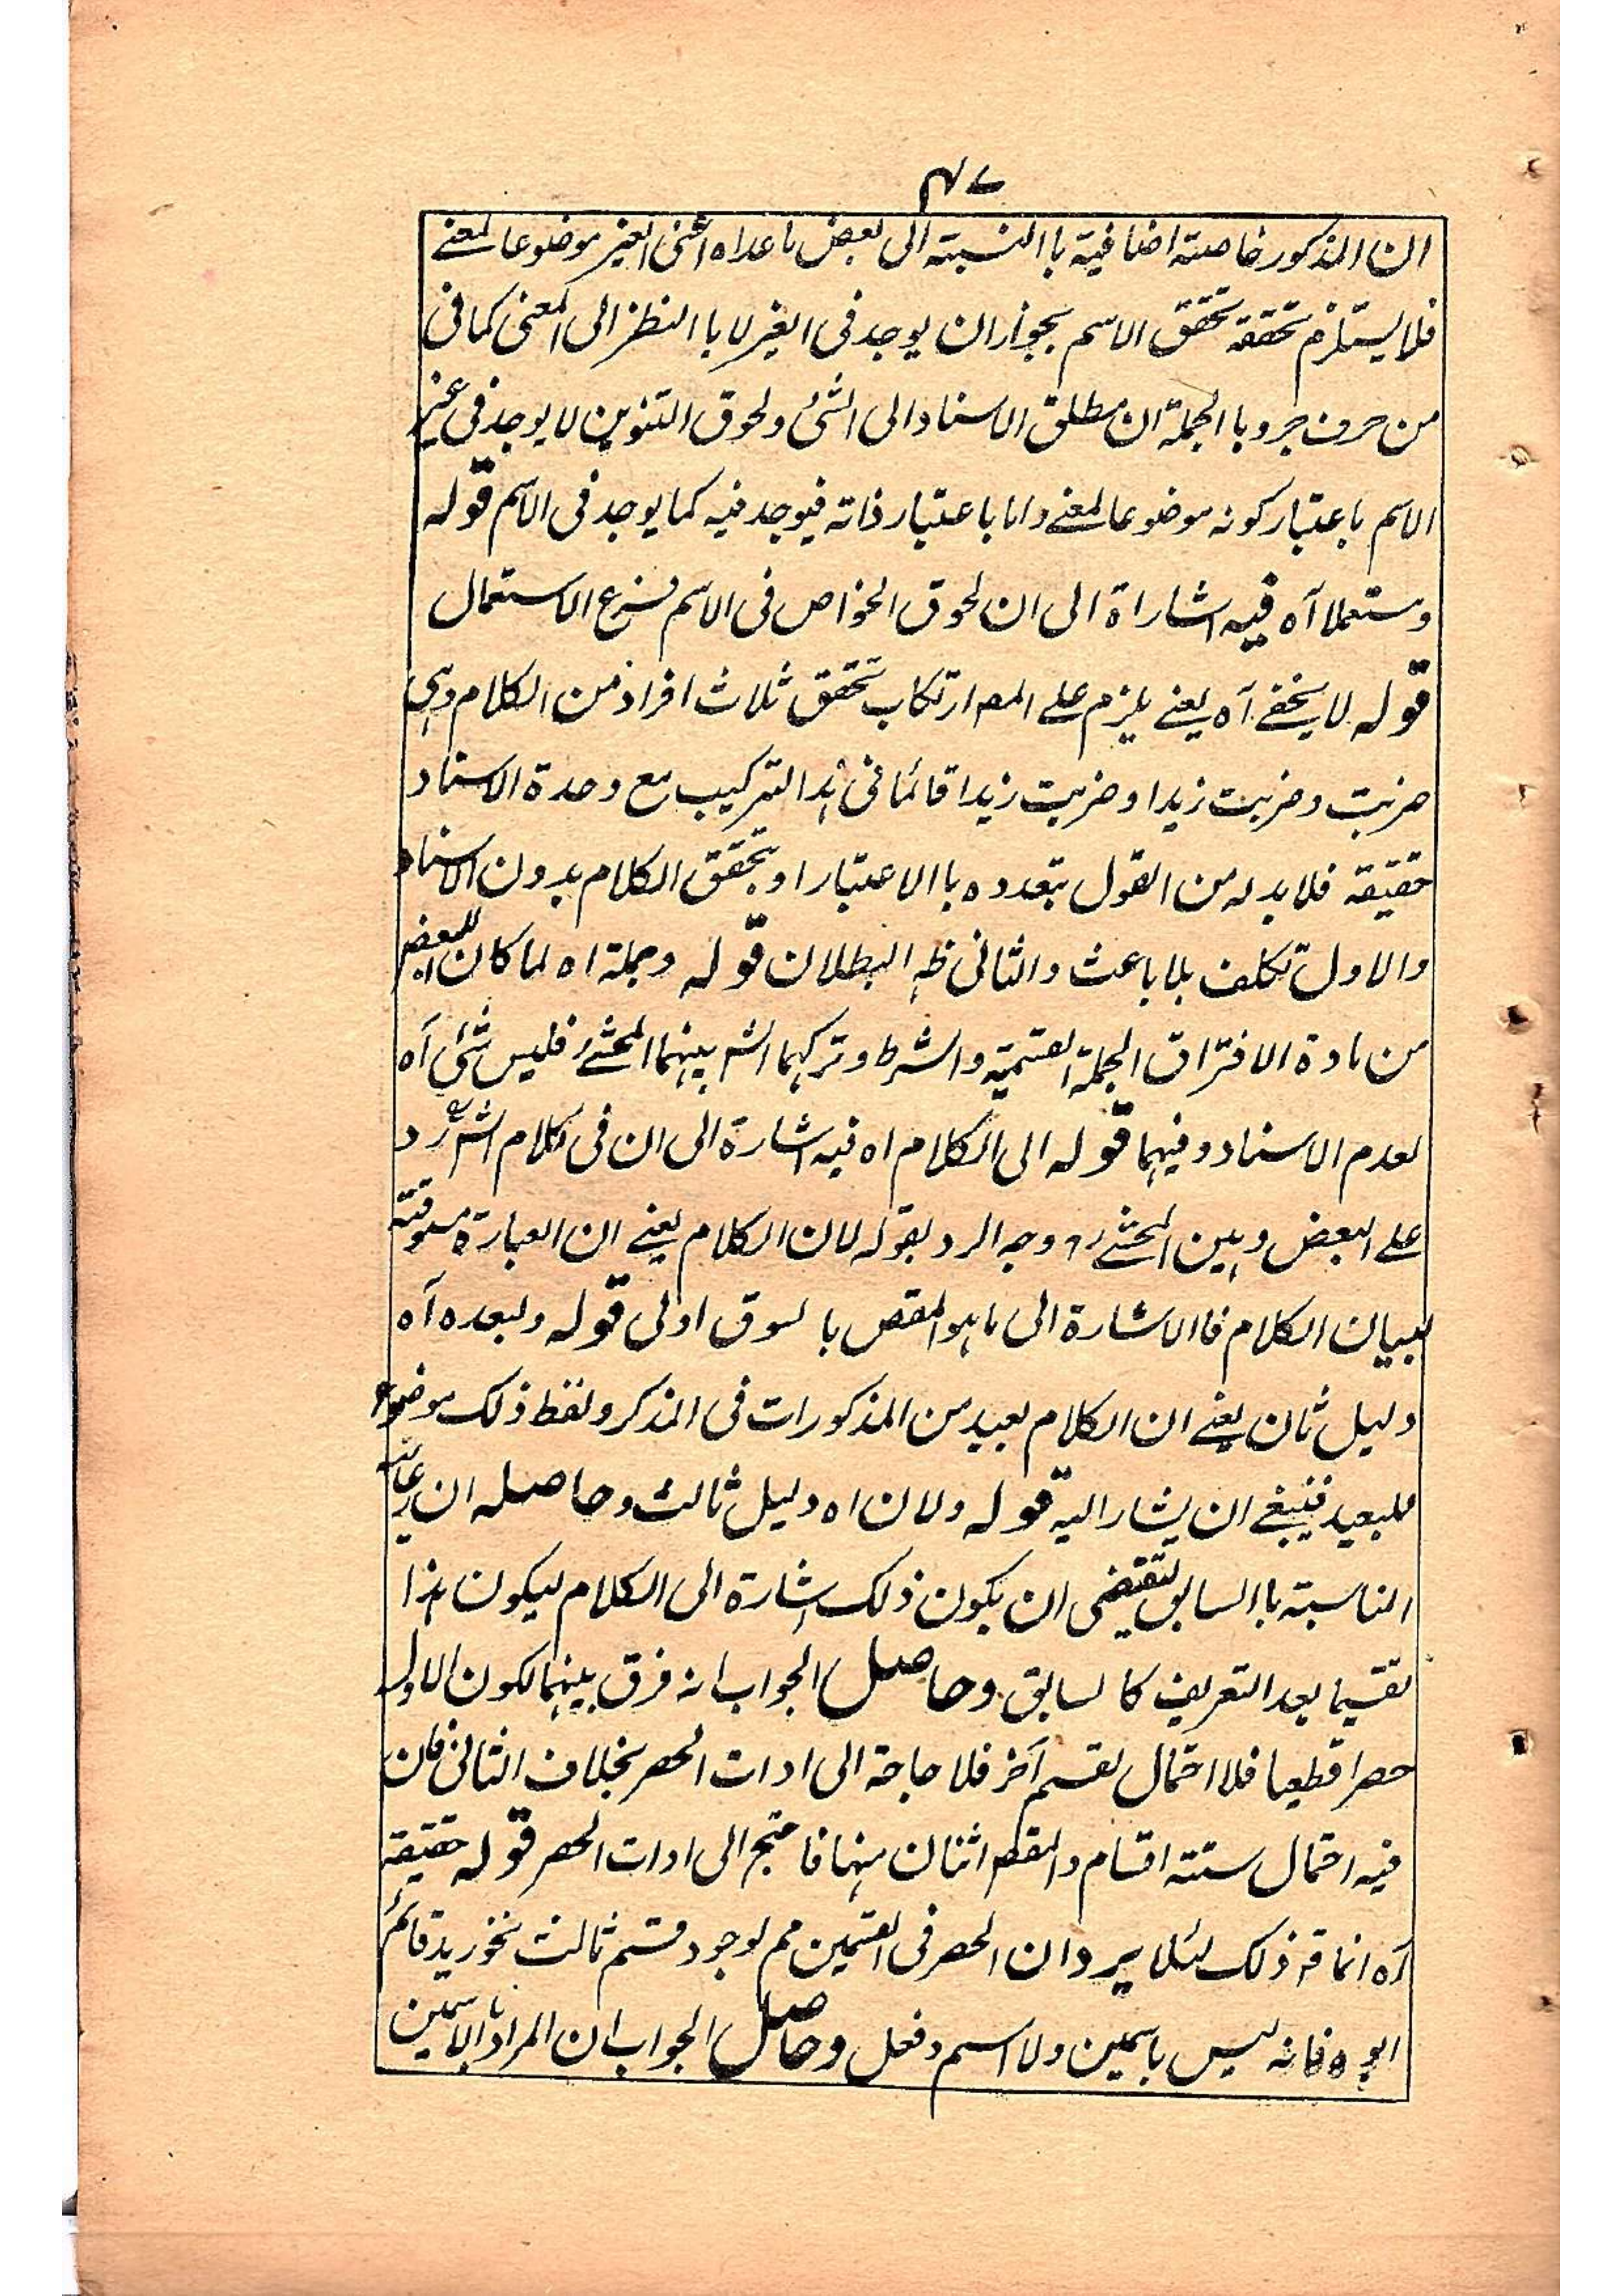 ۴۷
ان المذكور خاصته اضافية باالنسبته الى بعض ماعداه اعنى الغير موضوعا لمعنے
فلا يستلزم تحققه تحقق الاسم بجواز ان يوجد فى الغير لا باالنظر الى المعنى كما فى
من حرف جر وباالجملة ان مطلق الاسناد الى الشئ ولحوق التنوين لا يوجد فى غير
الاسم باعتبار كونه موضوعا لمعنے واما باعتبار ذاته فيوجد فيه كما يوجد فى الاسم قوله
ومستعملا آه فيه اشاراة الى ان لحوق الخواص فى الاسم فرع الاستعمال
قوله لا يخفے آه يعنے يلزم علے المصـ ارتكاب تحقق ثلاث افراد من الكلام وہى
ضربت وضربت زيدا وضربت زيدا قائما فى ہذا التركيب مع وحدة الاسناد
حقيقته فلا بد له من القول بتعدده باالاعتبار او بتحقق الكلام بدون الاسناد
والاول تكلف بلا باعث والثانى ظہ البطلان قوله وجملة اه لما كان للبعض
من مادة الافتراق الجملة القسمية والشرط وتركہما الشہ بينہما المحشےؒ فليس شئ آه
لعدم الاسناد وفيہما قوله الى الكلام اه فيه اشارة الى ان فى كلام الشہؒ رد
علے البعض وبين المحشےؒ وجه الرد بقوله لان الكلام يعنے ان العبارة مسوقته
لبيان الكلام فاالاشارة الى ماہو المقصـ بالسوق اولى قوله ولبعده آه
دليل ثان يعنے ان الكلام بعيد من المذكورات فى الذكر ولفظ ذلك موضوع
للبعيد فينبغے ان يشار اليه قوله ولان اه دليل ثالث وحاصله ان رعايته
المناسبته باالسابق تقتضى ان يكون ذلك اشارة الى الكلام ليكون ہذا
تقسيما بعد التعريف كالسابق وحاصل الجواب انه فرق بينہما لكون الاول
حصرا قطعيا فلا احتمال لقسم آخر فلا حاجة الى ادات الحصر بخلاف الثانى فان
فيه احتمال ستته اقسام والمقصـ اثنان منہا فاحتيج الى ادات الحصر قوله حقيقته
آه انما قہ ذلك لئلا يرد ان الحصر فى القسمين مم لوجود قسم ثالث نحو زيد قائم
ابوه فانه ليس باسمين ولا اسم وفعل وحاصل الجواب ان المراد بالاسمين